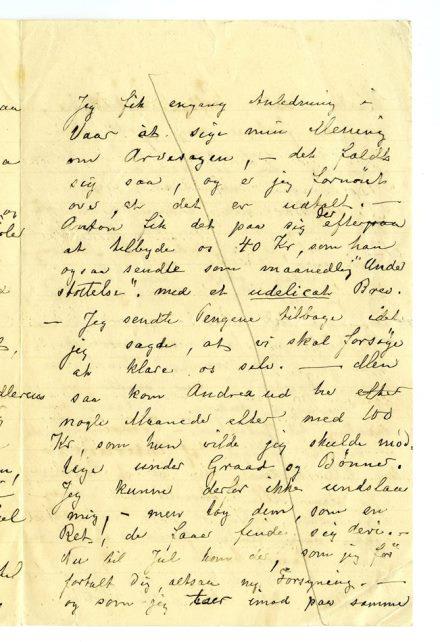 Jeg fik engang Anledning i
Vaar at sige min Mening
om Arvesagen, — det faldt
sig saa, og er jeg fornøiet
over, at det er udtalt. —
Anton fik det paa sig derefter
at tilbyde os 40 Kr, som han
ogsaa sendte som maanedlig "Unde
støttelse". med et udelicat Brev.
— Jeg sendte Pengene tilbage idet
jeg sagde, at vi skal forsøge
at klare os selv. — Men
saa kom Andrea ud her efter
nogle Maaneder efter med 100
Kr, som hun vilde jeg skulde mod-
tage under Graad og Bønner.
Jeg kunne derfor ikke undslaa
mig, — men tog dem, som en
Ret!, de faar finde sig deri. —
Nu til Jul kom der, som jeg før
fortalt Dig, altsaa ny Forsyning. —
og som jeg tager imod paa samme